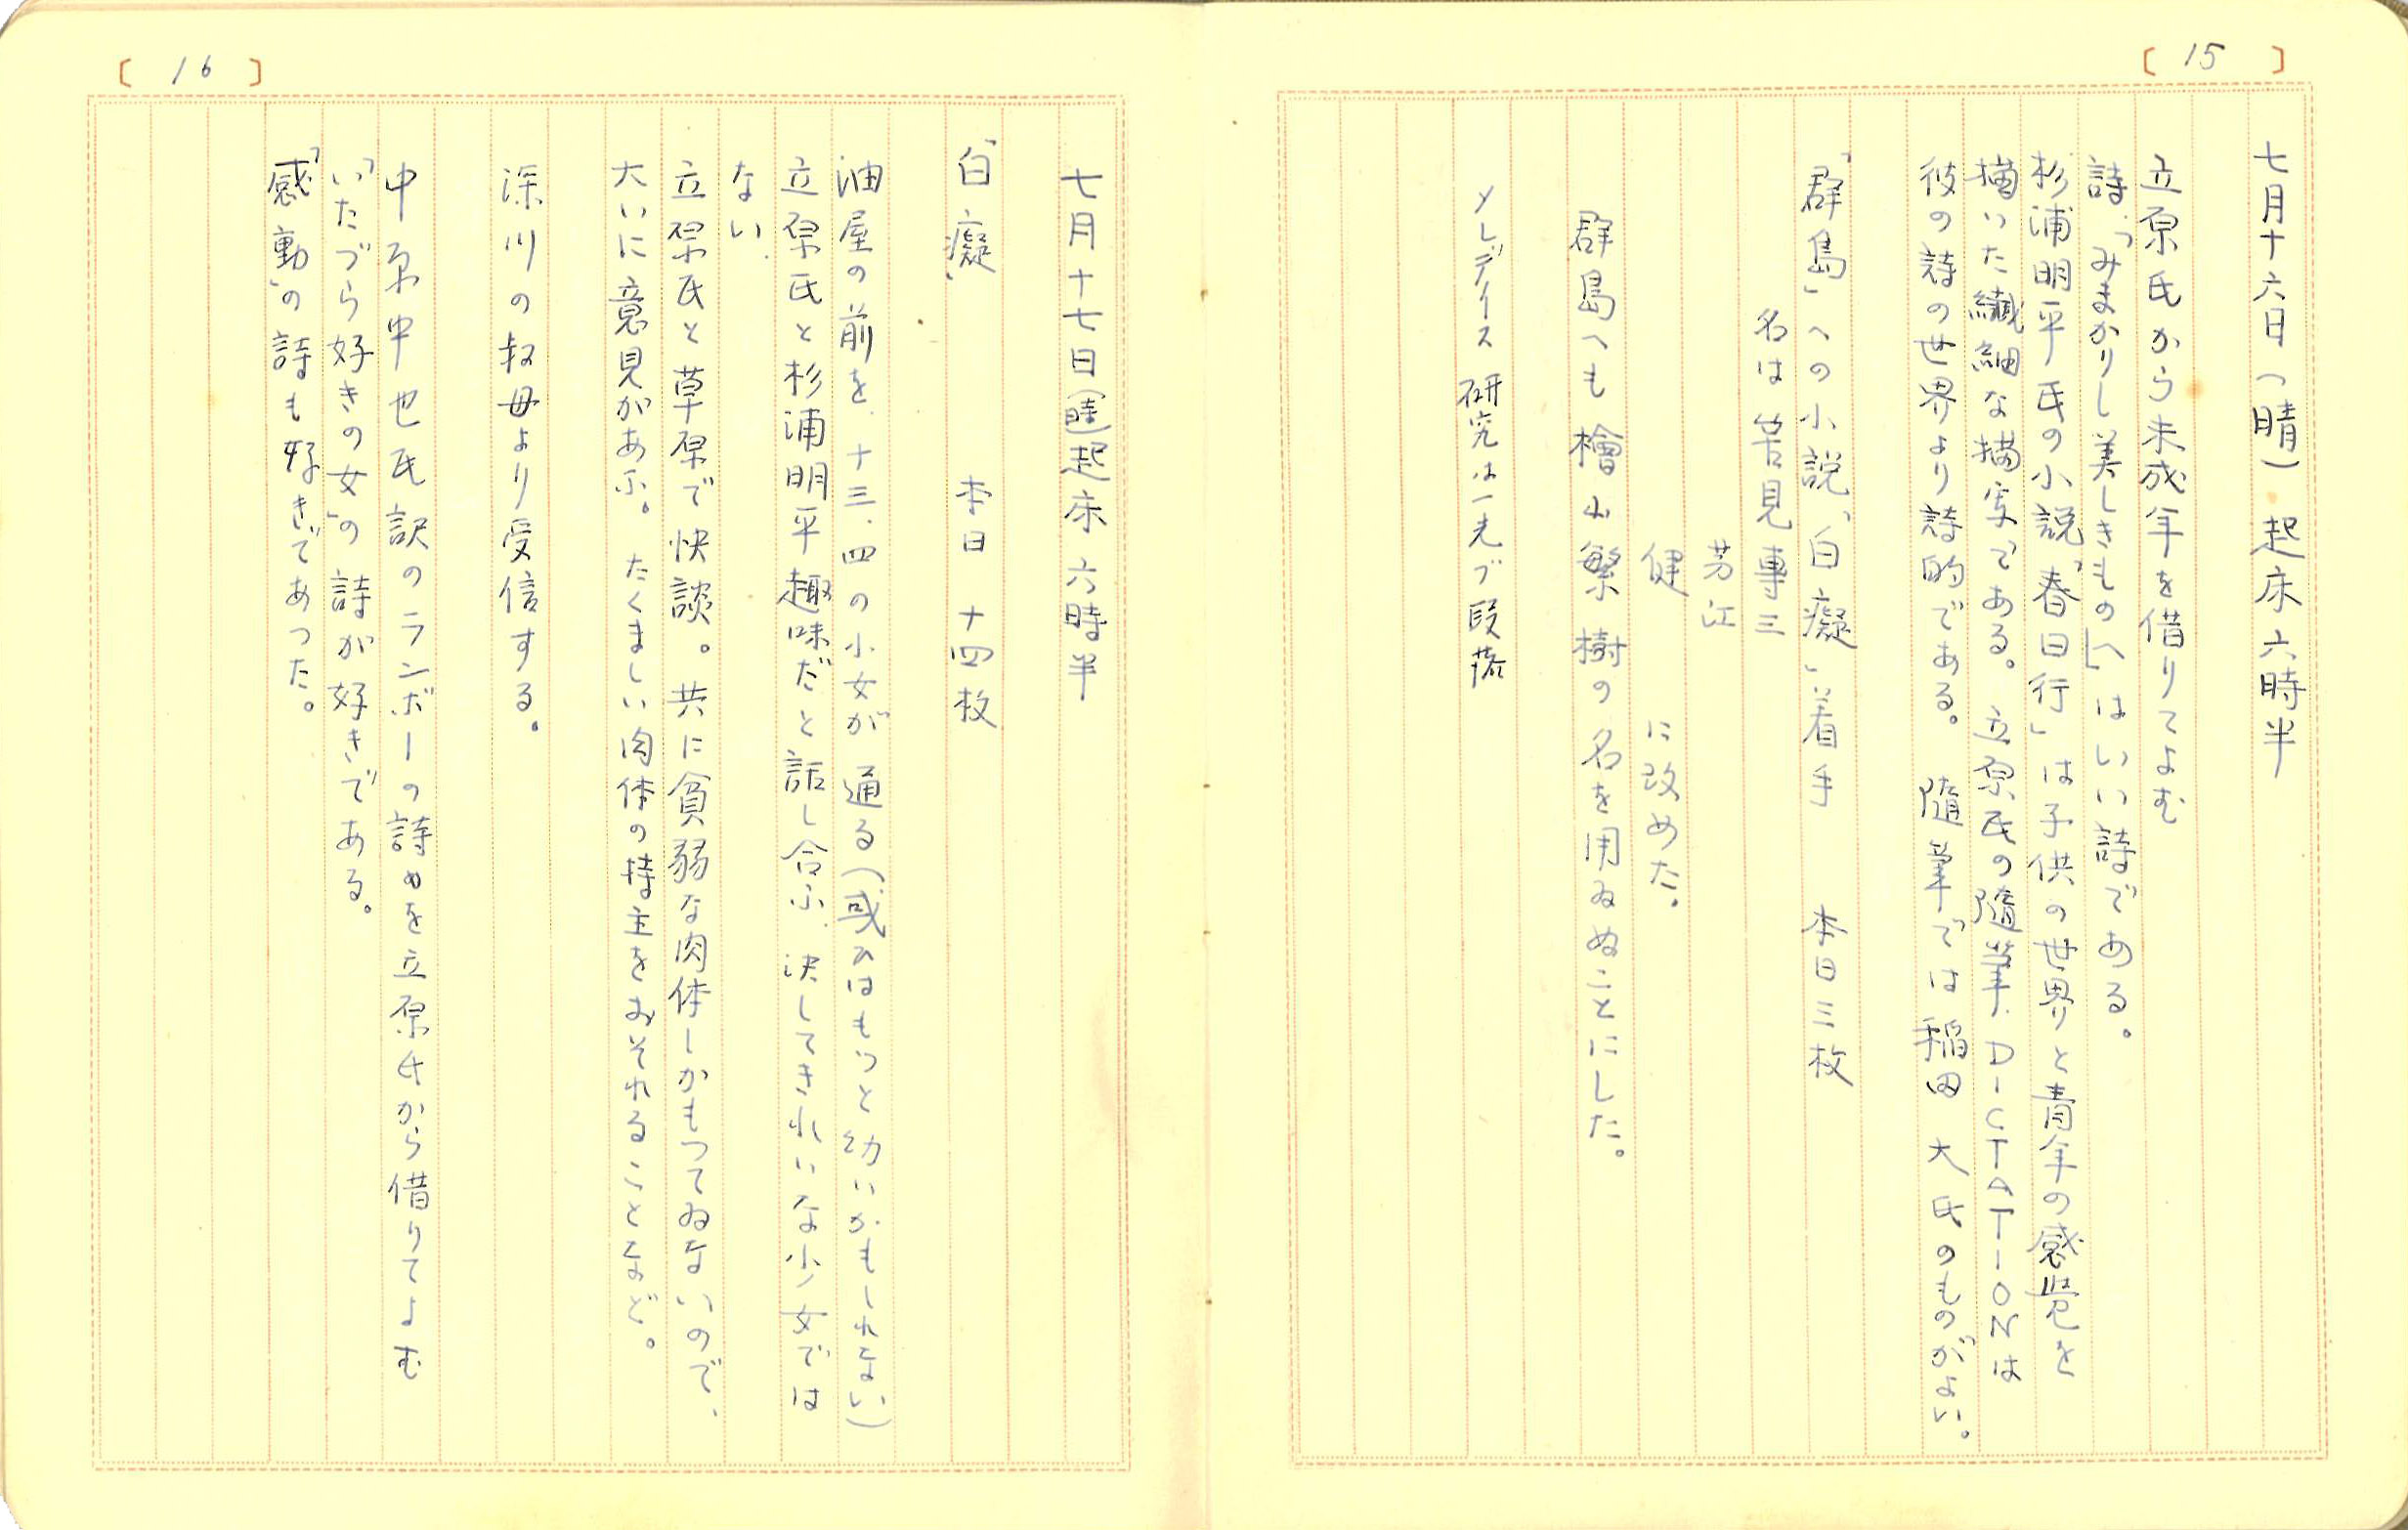 〔 15 〕
七月十六日(晴) 起床六時半
立原氏から未成年を借りてよむ
詩、「みまかりし美しきものへ」はいい詩である。
杉浦明平氏の小説「春日行」は子供の世界と青年の感覚を
描いた繊細な描写である。立原氏の隨筆DICTATIONは
彼の詩の世界より詩的である。 隨筆では稲田 大氏のものがよい。
「群島」への小説、「白癡」着手 本日三枚
名は苦見專三
芳江
健 に改めた。
群島へも檜山繁樹の名を用ゐぬことにした。
メレディース 研究は一先づ段落
〔 16 〕
七月十七日(晴)起床六時半
「白癡」 本日 十四枚
油屋の前を、十三、四の小女が通る(或ひはもつと幼いかもしれない)
立原氏と杉浦明平趣味だと話し合ふ、決してきれいな少女では
ない、
立原氏と草原で快談。共に貧弱な肉体しかもつてゐないので、
大いに意見があふ。たくましい肉体の持主をおそれることなど。
深川の叔母より受信する。
中原中也氏訳のランボーの詩を立原氏から借りてよむ
「いたづら好きの女」の詩が好きである。
「感動」の詩も好きであつた。